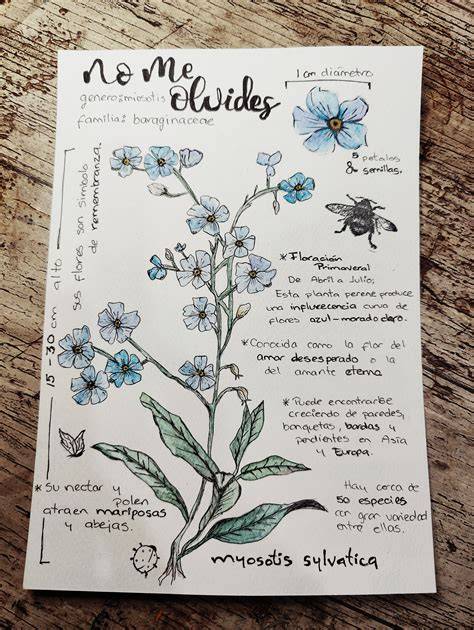 no me
olvides
genero: miosotis
familia: boraginaceae
1 cm diámetro
5 petalos
& semillas.
15 - 30 cm alto
sus flores son simbolo
de remembranza.
* Floración
Primaveral
De Abril a Julio;
Esta planta perene produce
una influrecencia curva de
flores azul-morado claro.
* Conocida como la flor del
amor desesperado o la
del amante eterno
* Puede encontrarse
creciendo de paredes,
banquetas, bordas y
pendientes en Asía
y Europa.
Hay cerca de
50 especies
con gran variedad
entre ellas.
* Su nectar y
polen
atraen mariposas
y abejas.
myosotis sylvatica